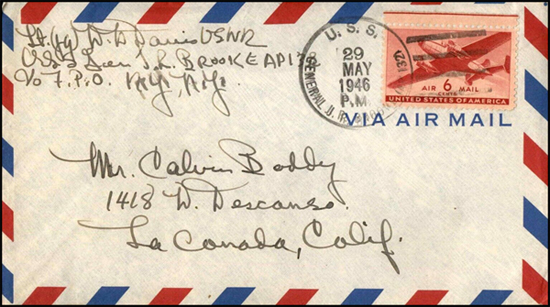 Lt. (jg) W. D. Davis USNR
USS Gen. J. R. BROOKE AP 132
c/o F.P.O. N.Y., N.Y.
U. S. S.
29
MAY
1946
P.M.
AIR 6 MAIL
CENTS
UNITED STATES OF AMERICA
VIA AIR MAIL
Mr. Calvin Boddy
1418 W. Descanso.
La Canada, Calif.